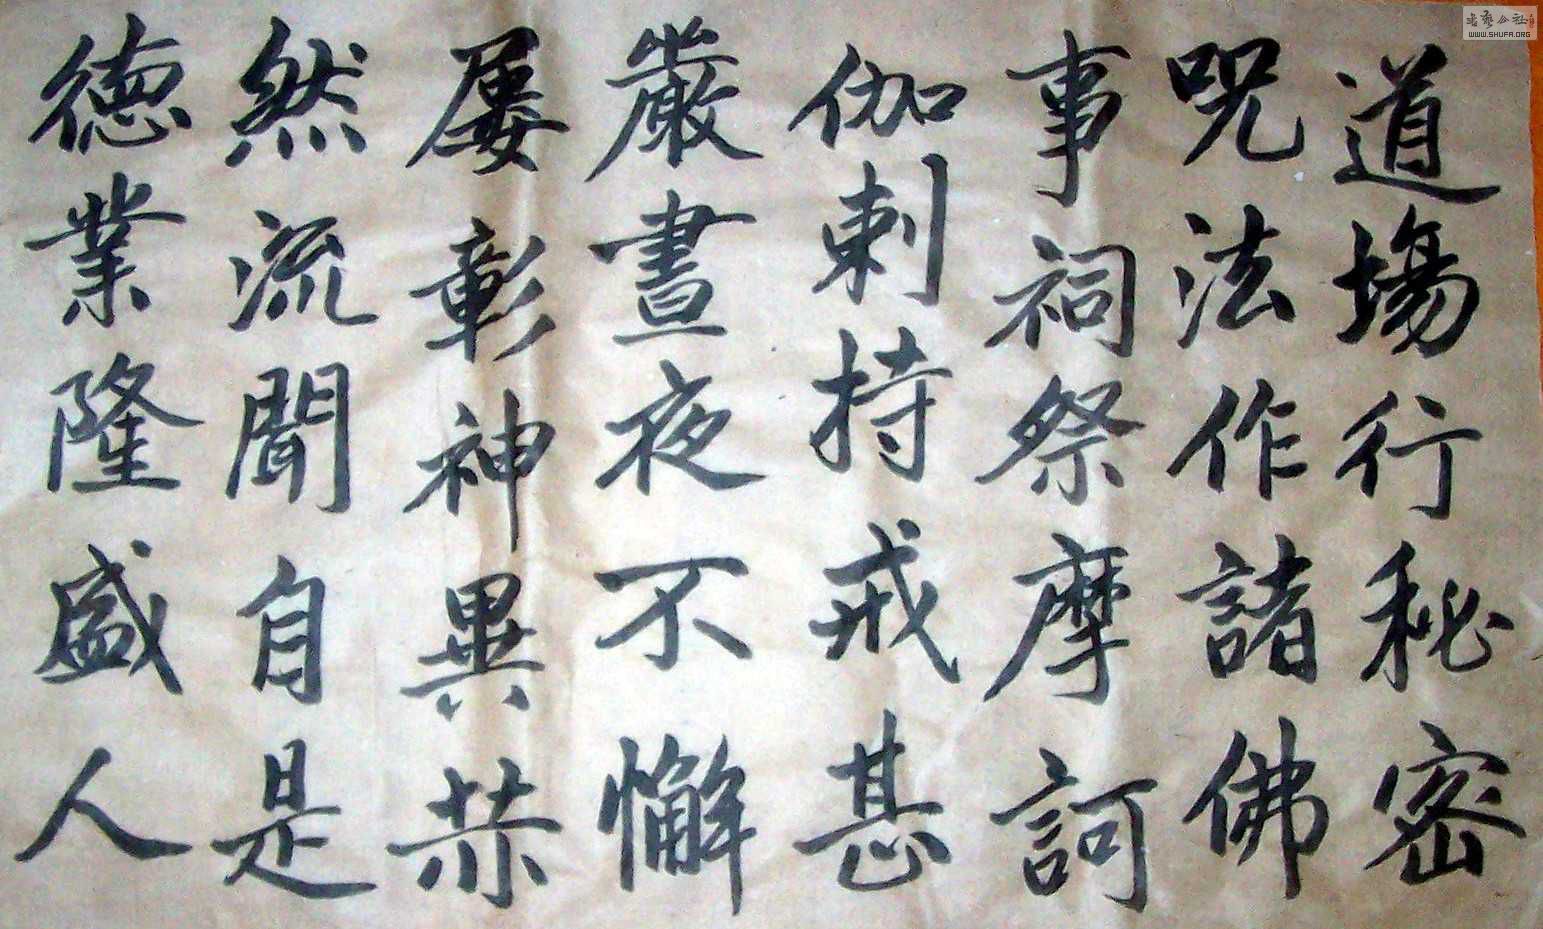 道場行秘密
呪法作諸佛
事祠祭摩訶
伽剌持戒甚
嚴晝夜不懈
屢彰神異赫
然流聞自是
德業隆盛人
WWW.SHUFA.ORG